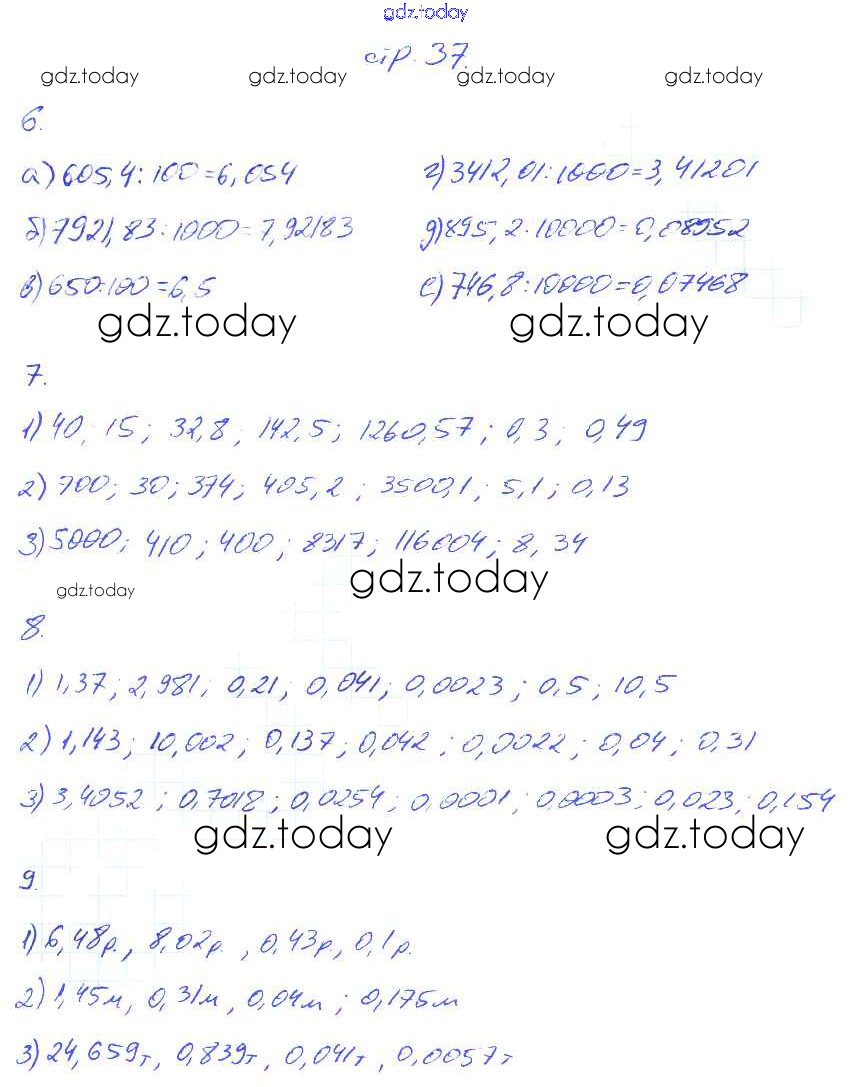 gdz.today
стр. 37.
gdz.today gdz.today gdz.today gdz.today
6.
а) 605,4 : 100 = 6,054 г) 3412,01 : 1000 = 3,41201
б) 7921,83 : 1000 = 7,92183 д) 895,2 · 10000 = 0,08952
в) 650 : 100 = 6,5 е) 746,8 : 10000 = 0,07468
gdz.today gdz.today
7.
1) 40, 15; 32,8, 142,5; 1260,57; 0,3; 0,49
2) 700; 30; 374; 405,2; 3500,1; 5,1; 0,13
3) 5000; 410; 400; 8317; 116004; 8,34
gdz.today gdz.today
8.
1) 1,37; 2,981; 0,21; 0,041; 0,0023; 0,5; 10,5
2) 1,143; 10,002; 0,137; 0,042; 0,0022; 0,04; 0,31
3) 3,4052; 0,7018; 0,0254; 0,0001; 0,0003; 0,023; 0,154
gdz.today gdz.today
9.
1) 6,48р., 8,02р., 0,43р, 0,1р.
2) 1,45м, 0,31м, 0,04м; 0,175м
3) 24,659т, 0,839т, 0,041т, 0,0057т